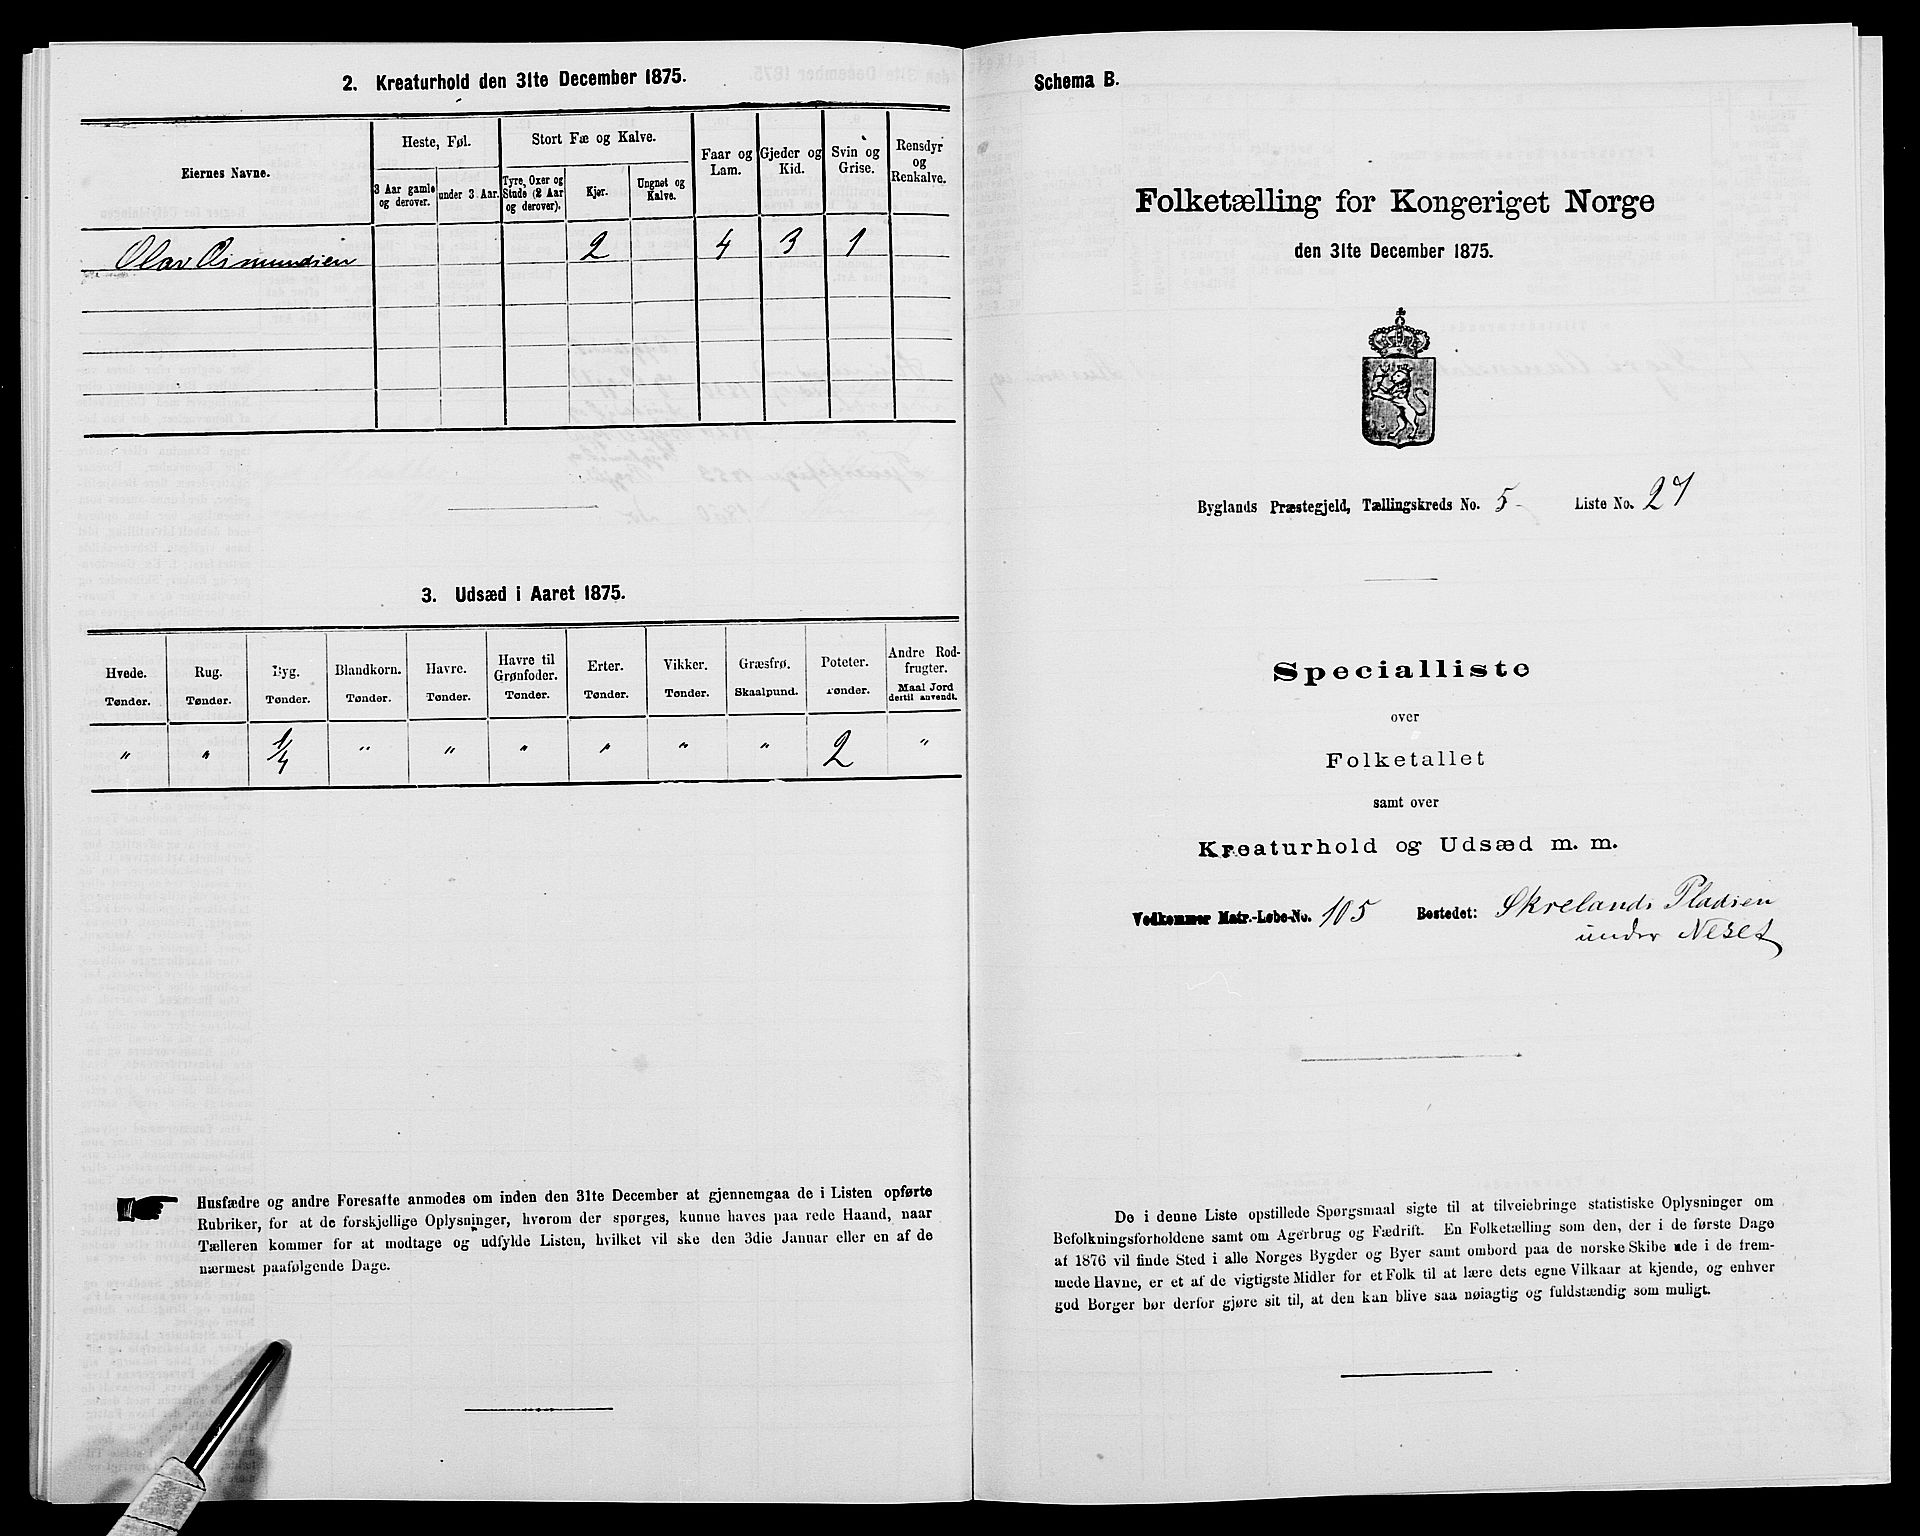 2. Kreaturhold den 31te December 1875.
Eiernes Navne.
Heste, Føl.
Stort Fæ og Kalve.
Faar og Lam.
Gjeder og Kid.
Svin og Grise.
Rensdyr og Renkalve.
3 Aar gamle og derover.
under 3 Aar.
Tyre, Oxer og Stude (2 Aar og derover).
Kjør.
Ungnøt og Kalve.
Olav Osmundsen 2 4 3 1
3. Udsæd i Aaret 1875.
Hvede. Rug. Byg. Blandkorn. Havre. Havre til Grønfoder. Erter. Vikker. Græsfrø. Poteter. Andre Rodfrugter.
Tønder. Tønder. Tønder. Tønder. Tønder. Tønder. Tønder. Tønder. Skaalpund. Tønder. Maal Jord dertil anvendt.
" " 1/4 " " " " " " 2 "
Husfædre og andre Foresatte anmodes om inden den 31te December at gjennemgaa de i Listen opførte
Rubriker, for at de forskjellige Oplysninger, hvorom der spørges, kunne haves paa rede Haand, naar
Tælleren kommer for at modtage og udfylde Listen, hvilket vil ske den 3die Januar eller en af de
nærmest paafølgende Dage.
Schema B.
Folketælling for Kongeriget Norge
den 31te December 1875.
Byglands Præstegjeld, Tællingskreds No. 5 Liste No. 27
Specialliste
over
Folketallet
samt over
Kreaturhold og Udsæd m. m.
Vedkommer Matr.-Løbe-No. 105 Bostedet: Skrelands Pladsen
under Neset
De i denne Liste opstillede Spørgsmaal sigte til at tilveiebringe statistiske Oplysninger om
Befolkningsforholdene samt om Agerbrug og Fædrift. En Folketælling som den, der i de første Dage
af 1876 vil finde Sted i alle Norges Bygder og Byer samt ombord paa de norske Skibe ude i de frem-
mede Havne, er et af de vigtigste Midler for et Folk til at lære dets egne Vilkaar at kjende, og enhver
god Borger bør derfor gjøre sit til, at den kan blive saa nøiagtig og fuldstændig som muligt.